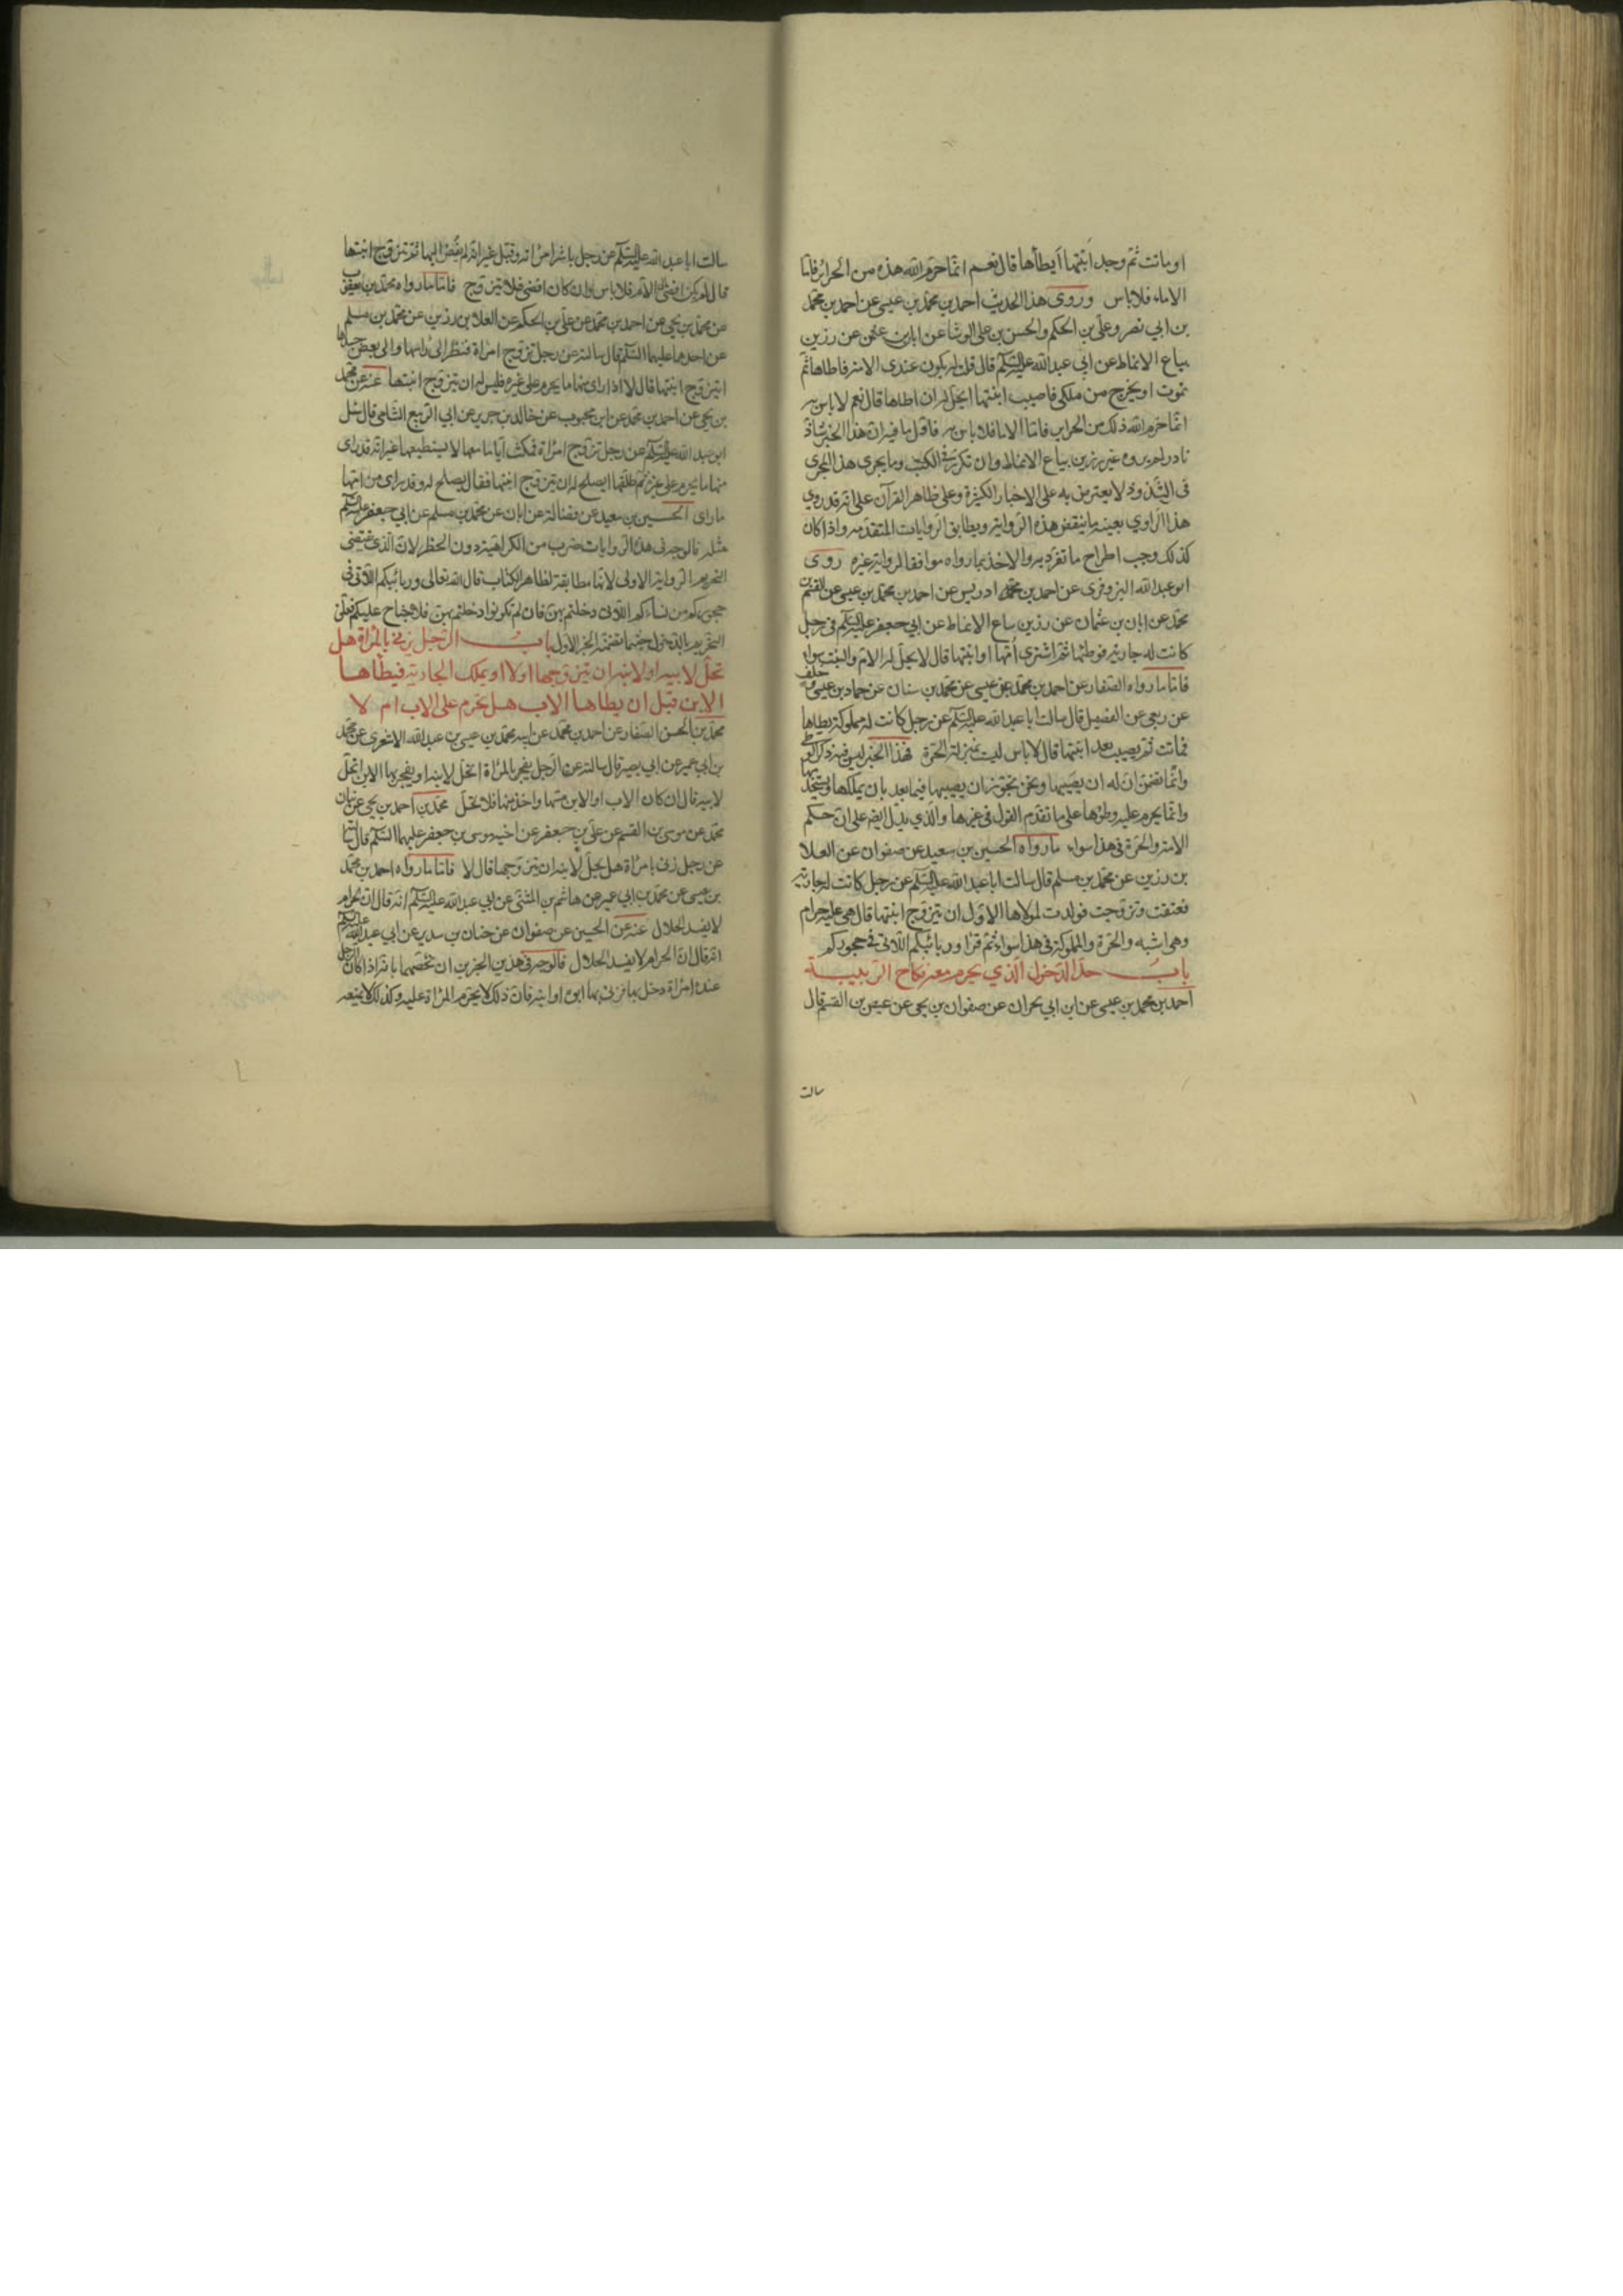 او ماتت ثم وجد ابنتها أيطأها قال نعم انما حرم الله هذه من الحرائر فاما
الاماء فلا باس وروى هذا الحديث احمد بن محمد بن عيسى عن احمد بن محمد
بن ابي نصر وعلي بن الحكم والحسن بن علي الوشا عن ابان بن عثمن عن رزين
بياع الانماط عن ابي عبد الله عليه السلم قال قلت له يكون عندي الامة فاطاها ثم
تموت او يخرج من ملكي فاصيب ابنتها ايحل لي ان اطاها قال نعم لا باس به
انما حرم الله ذلك من الحراير فاما الاما فلا باس به فاول ما فيه ان هذا الخبر شاذ
نادر لم يروه غير رزين بياع الانماط وان تكرر في الكتب وما يجرى هذا المجرى
فى الشذوذ لا يعترض به على الاخبار الكثيرة وعلى ظاهر القرآن على انه قد روي
هذا الراوي بعينه ما ينقض هذه الرواية ويطابق الروايات المتقدمه واذا كان
كذلك وجب اطراح ما تفرد به والاخذ بما رواه موافقا لرواية غيره روى
ابو عبد الله البزوفرى عن احمد بن ادريس عن احمد بن محمد بن عيسى عن القسم بن
محمد عن ابان بن عثمان عن رزين بياع الانماط عن ابي جعفر عليه السلم في رجل
كانت له جارية فوطئها ثم اشترى أمها او ابنتها قال لا يحل له الام والبنت سواء
فاما ما رواه الصفار عن احمد بن محمد بن عيسى عن محمد بن سنان عن حماد بن عيسى وخلف
عن ربعي عن الفضيل قال سالت ابا عبد الله عليه السلم عن رجل كانت له مملوكة يطاها
فماتت ثم يصيب بعد ابنتها قال لا باس ليست بمنزلة الحرة فهذا الخبر ليس فيه ذكر الوطى
وانما تضمن ان له ان يصيبها ونحن نجوز ان يصيبها فيما بعد بان يملكها ويستخدمها
وانما يحرم عليه وطؤها على ما تقدم القول في غيرها والذي يدل ايضا على ان حكم
الامة والحرة في هذا سواء ما رواه الحسين بن سعيد عن صفوان عن العلا
بن رزين عن محمد بن مسلم قال سالت ابا عبد الله عليه السلم عن رجل كانت له جارية
فعتقت وتزوجت فولدت لمولاها الاول ان يتزوج ابنتها قال هي عليه حرام
وهى ابنته والحرة والمملوكة في هذا سواء ثم قرأ وربائبكم اللاتى في حجوركم
باب حد الدخول الذي يحرم معه نكاح الربيبة
احمد بن محمد بن عيسى عن ابن ابي نجران عن صفوان بن يحيى عن عيص بن القسم قال
سالت
سالت ابا عبد الله عليه السلم عن رجل باشر امراته وقبل غير انه لم يفض اليها ثم تزوج ابنتها
قال ان لم يكن افضى الى الام فلا باس وان كان افضى فلا يتزوج فاما ما رواه محمد بن يعقوب
عن محمد بن يحيى عن احمد بن محمد عن علي بن الحكم عن العلا بن رزين عن محمد بن مسلم
عن احدهما عليهما السلم قال سالته عن رجل تزوج امراة فنظر الى راسها والى بعض جسدها
ايتزوج ابنتها قال لا اذا راى منها ما يحرم على غيره فليس له ان يتزوج ابنتها عنه عن محمد
بن يحيى عن احمد بن محمد عن ابن محبوب عن خالد بن جرير عن ابي الربيع الشامى قال سئل
ابو عبد الله عليه السلم عن رجل تزوج امراة فمكث اياما معها لا يستطيعها غير انه قد راى
منها ما يحرم على غيره ثم طلقها ايصلح له ان يتزوج ابنتها فقال يصلح له وقد راى من امها
ما راى الحسين بن سعيد عن فضالة عن ابان عن محمد بن مسلم عن ابي جعفر عليه السلم
مثله فالوجه في هذه الروايات ضرب من الكراهية دون الحظر لان الذي يقتضى
التحريم الرواية الاولى لانها مطابقة لظاهر الكتاب قال الله تعالى وربائبكم اللاتى في
حجوركم من نسائكم اللاتى دخلتم بهن فان لم تكونوا دخلتم بهن فلا جناح عليكم فعلق
التحريم بالدخول حسبما تضمنه الخبر الاول باب الرجل يزني بالمراة هل
تحل لابيه او لابنه ان يتزوجها اولا او يملك الجارية فيطاها
الابن قبل ان يطاها الاب هل يحرم على الاب ام لا
محمد بن الحسن الصفار عن احمد بن محمد عن ابيه محمد بن عيسى بن عبد الله الاشعرى عن محمد
بن ابي عمير عن ابي بصير قال سالته عن الرجل يفجر بالمراة اتحل لابنه او يفجر بها الابن اتحل
لابيه قال ان كان الاب او الابن مسها واخذ منها فلا تحل محمد بن احمد بن يحيى عن بنان بن
محمد عن موسى بن القسم عن علي بن جعفر عن اخيه موسى بن جعفر عليهما السلم قال سالته
عن رجل زنى بامراة هل يحل لابنه ان يتزوجها قال لا فاما ما رواه احمد بن محمد
بن عيسى عن محمد بن ابي عمير عن هاشم بن المثنى عن ابي عبد الله عليه السلم انه قال ان الحرام
لا يفسد الحلال عنه عن الحسين عن صفوان عن حنان بن سدير عن ابي عبد الله عليه السلم
انه قال ان الحرام لا يفسد الحلال فالوجه في هذين الخبرين ان نخصهما بانه اذا كان الرجل
عنده امراة دخل بها فزنى بها ابوه او ابنه فان ذلك لا يحرم المراة عليه وكذلك لا يمنعه